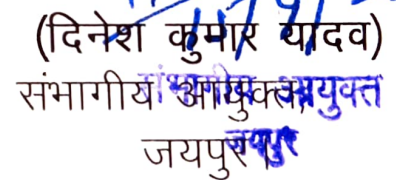 (दिनेश कुमार यादव)
संभागीय आयुक्त,
जयपुर।
संभागीय आयुक्त
जयपुर